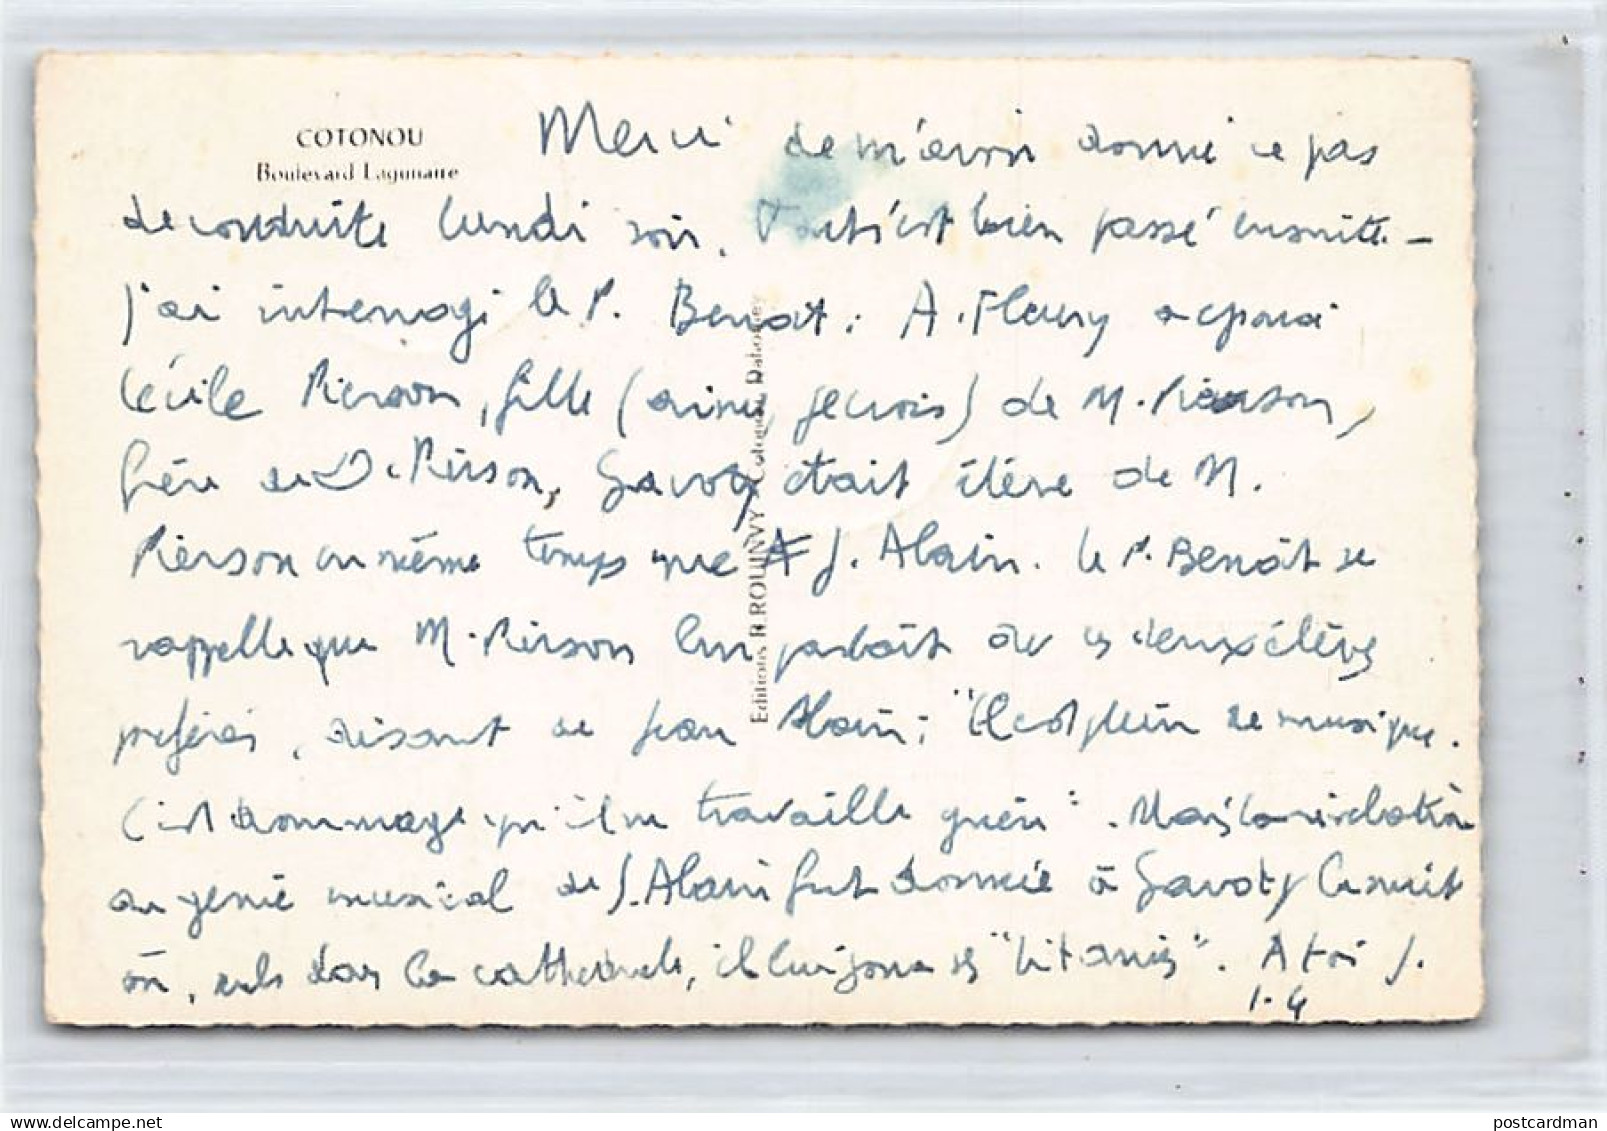 COTONOU
Boulevard Lagunaire
Merci de m'avoir donné ce pas
de conduite lundi soir. Tout s'est bien passé ensuite -
J'ai interrogé le P. Benoit : A. Fleury a épousé
Cécile Pierson, fille (aînée, je crois) de M. Pierson,
frère de D. Pierson, Gavoty était élève de M.
Pierson en même temps que J. Alain. le P. Benoît se
rappelle que M. Pierson leur parlait de ces deux élèves
préférés, disant de Jean Alain : "Il est plein de musique.
C'est dommage qu'il ne travaille guère". Mais la révélation
du génie musical de J. Alain fut donnée à Gavoty la nuit
où, seuls dans la cathédrale, il lui joua ses "Litanies". A toi J.
1-4
Editions R. ROUINVY - Cotonou, Dahomey
postcardman
postcardman.delcampe.net